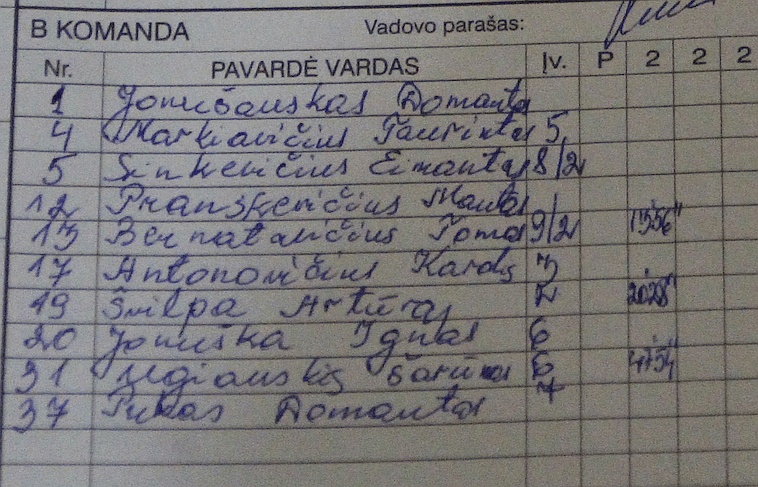 B KOMANDA Vadovo parašas:
Nr. PAVARDĖ VARDAS Įv. P 2 2 2
1 Jonušauskas Domantas
4 Markiavičius Taurintas 5
5 Sinkevičius Eimantas 8/2
12 Pranskevičius Mantas
13 Bernatavičius Tomas 9/2
17 Antonovičius Karolis 3
19 Šmilpa Artūras 2
20 Jonuška Ignas 6
31 Šarūnas 6
37 Pukas Domantas 7